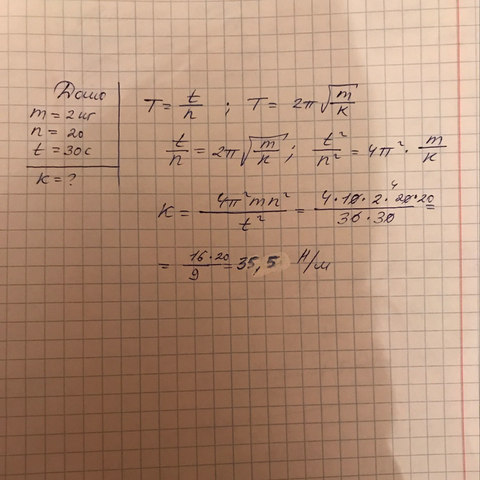 Дано
m = 2 кг
n = 20
t = 30 с
K = ?
T = t/n ; T = 2π√(m/K)
t/n = 2π√(m/K) ; t²/n² = 4π² · m/K
K = 4π²mn²/t² = 4·10·2·20·20/30·30 =
= 16·20/9 = 35,5 Н/м